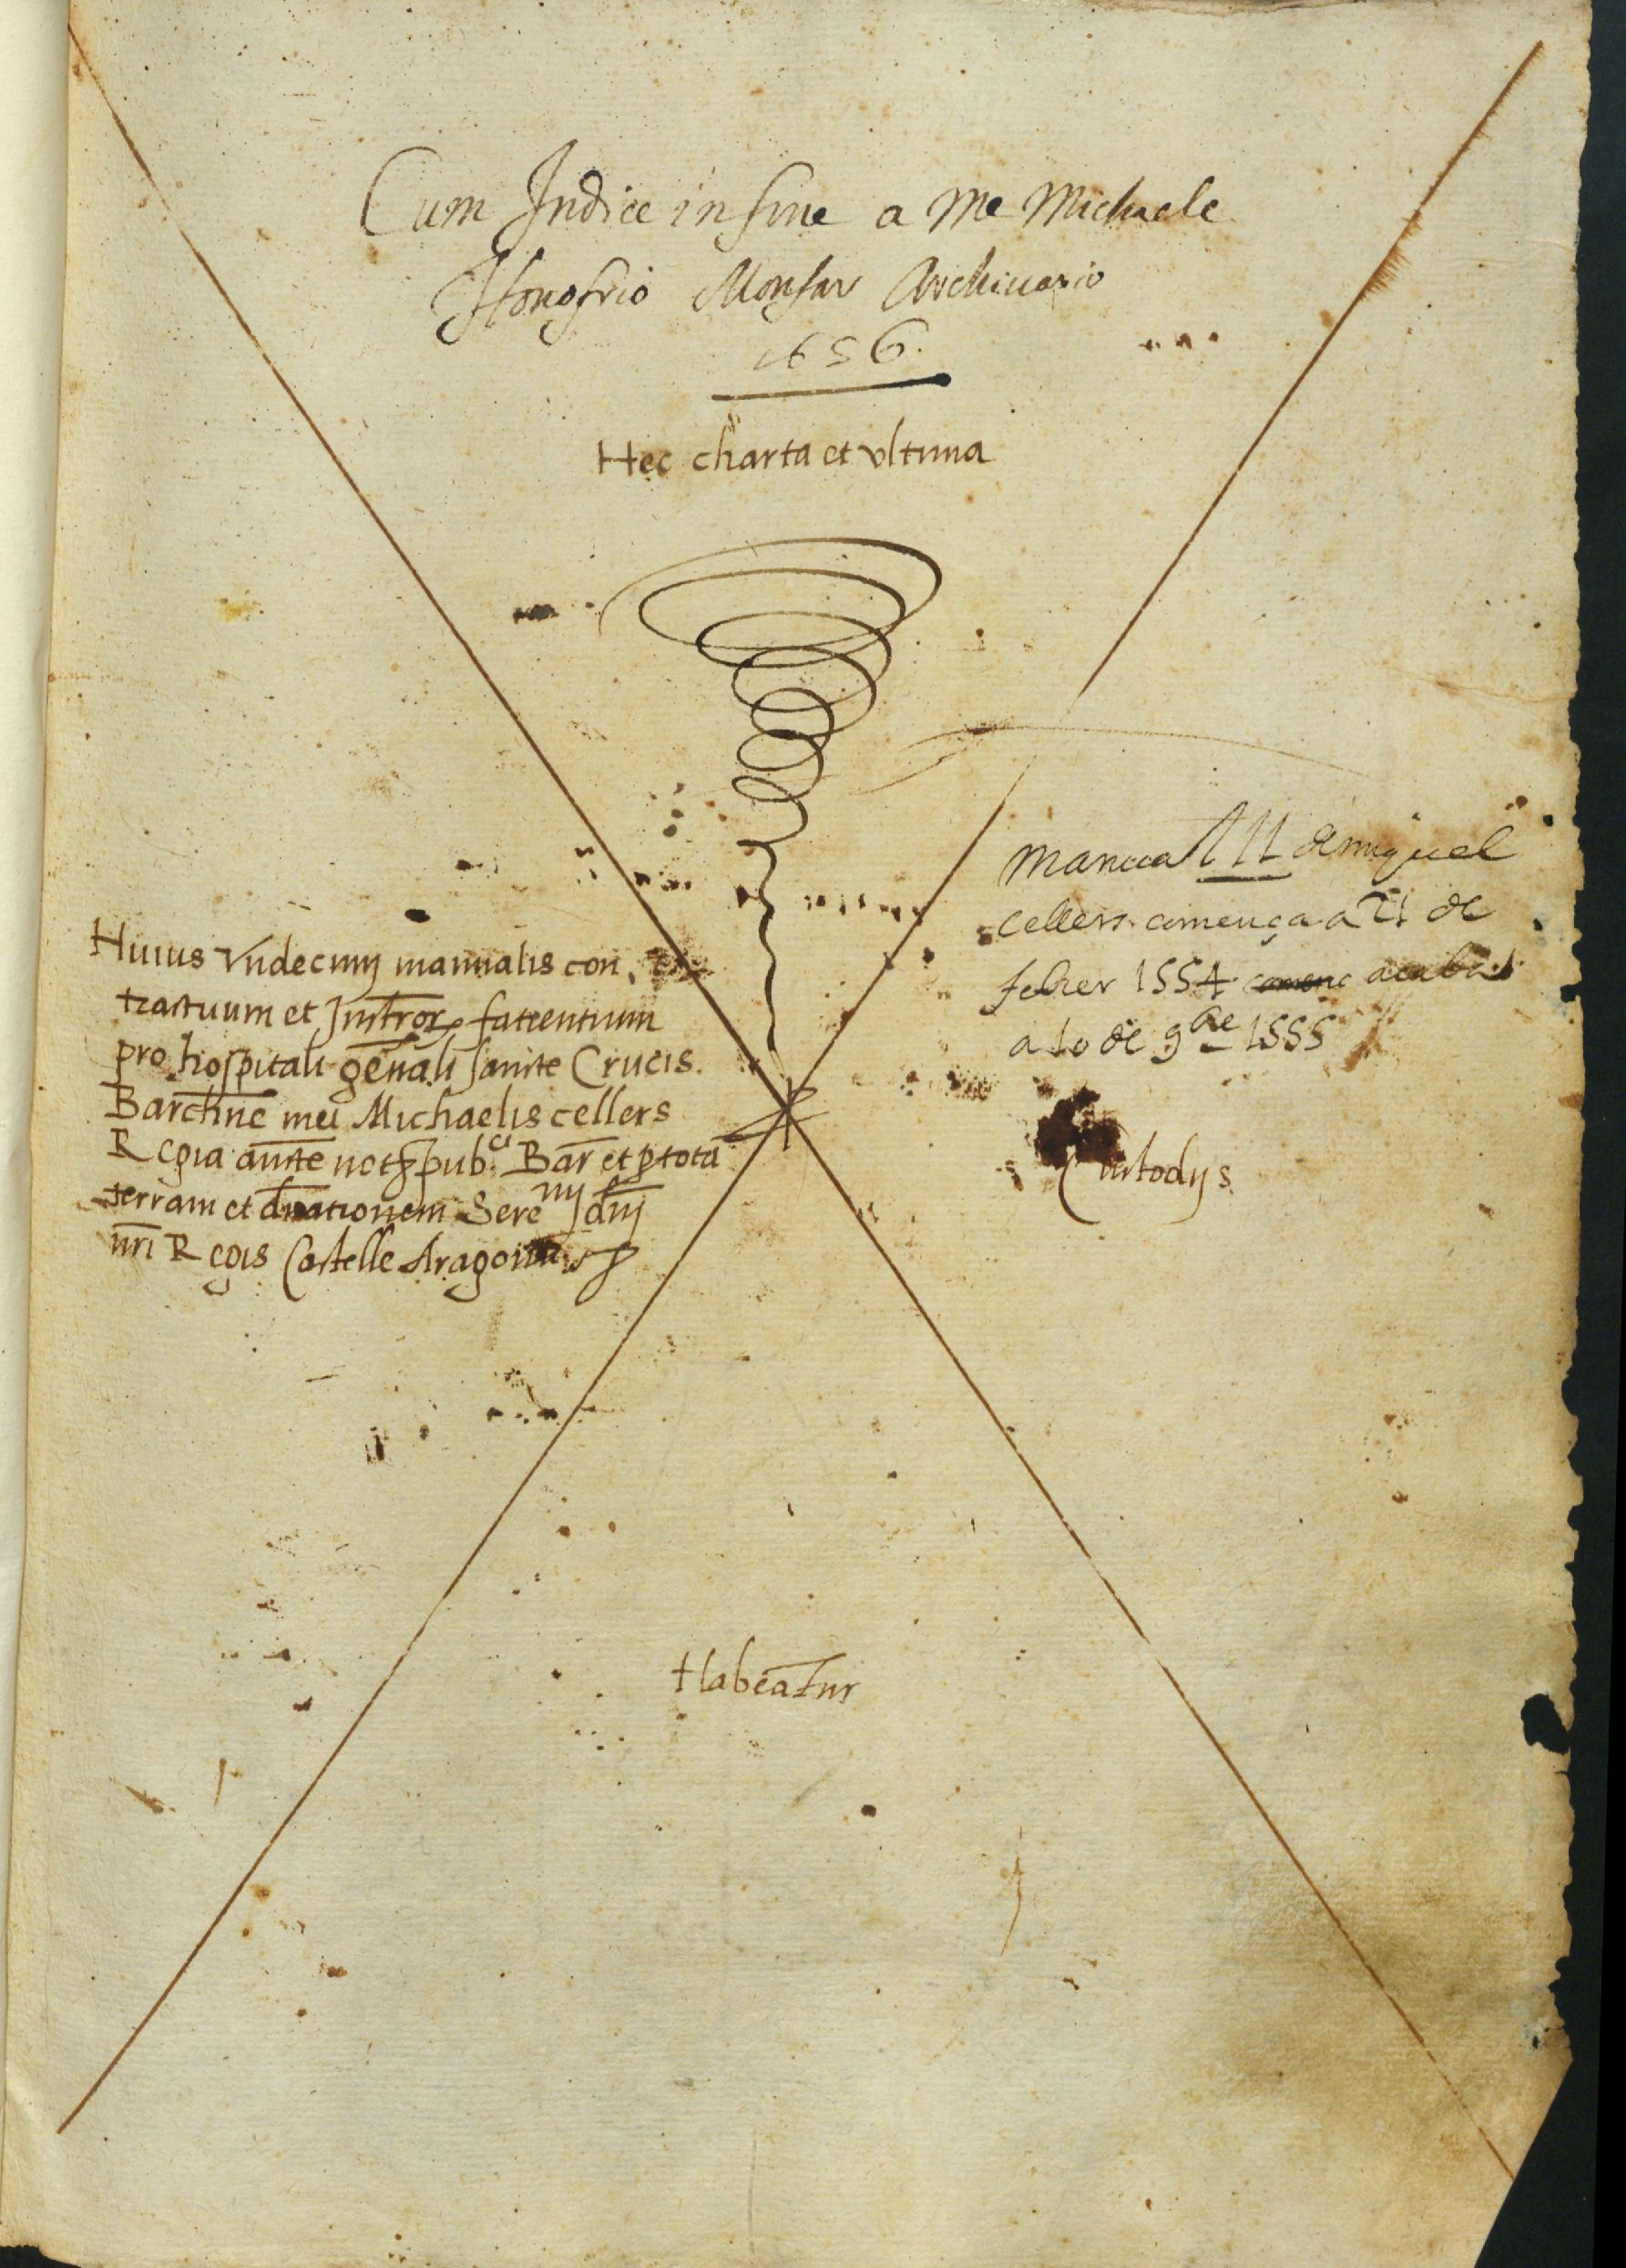 Cum Indice in fine a me Michaele
Honofrio Monfar Archivario
1656.
Hec charta et vltima
Huius vndecimi manualis con
tractuum et Instror facientium
pro hospitali gen̄ali sancte Crucis
Barchn̄e mei Michaelis cellers
Regia aucte not pubci Bar et ꝑ totā
terram et dn̄ationem Serenij dn̄j
nr̄i Regis Castelle Aragonū
manual 11 de miquel
cellers comença a 21 de
febrer 1554 acaba
a 10 de 9bre 1555
Custodijs
Habeatur